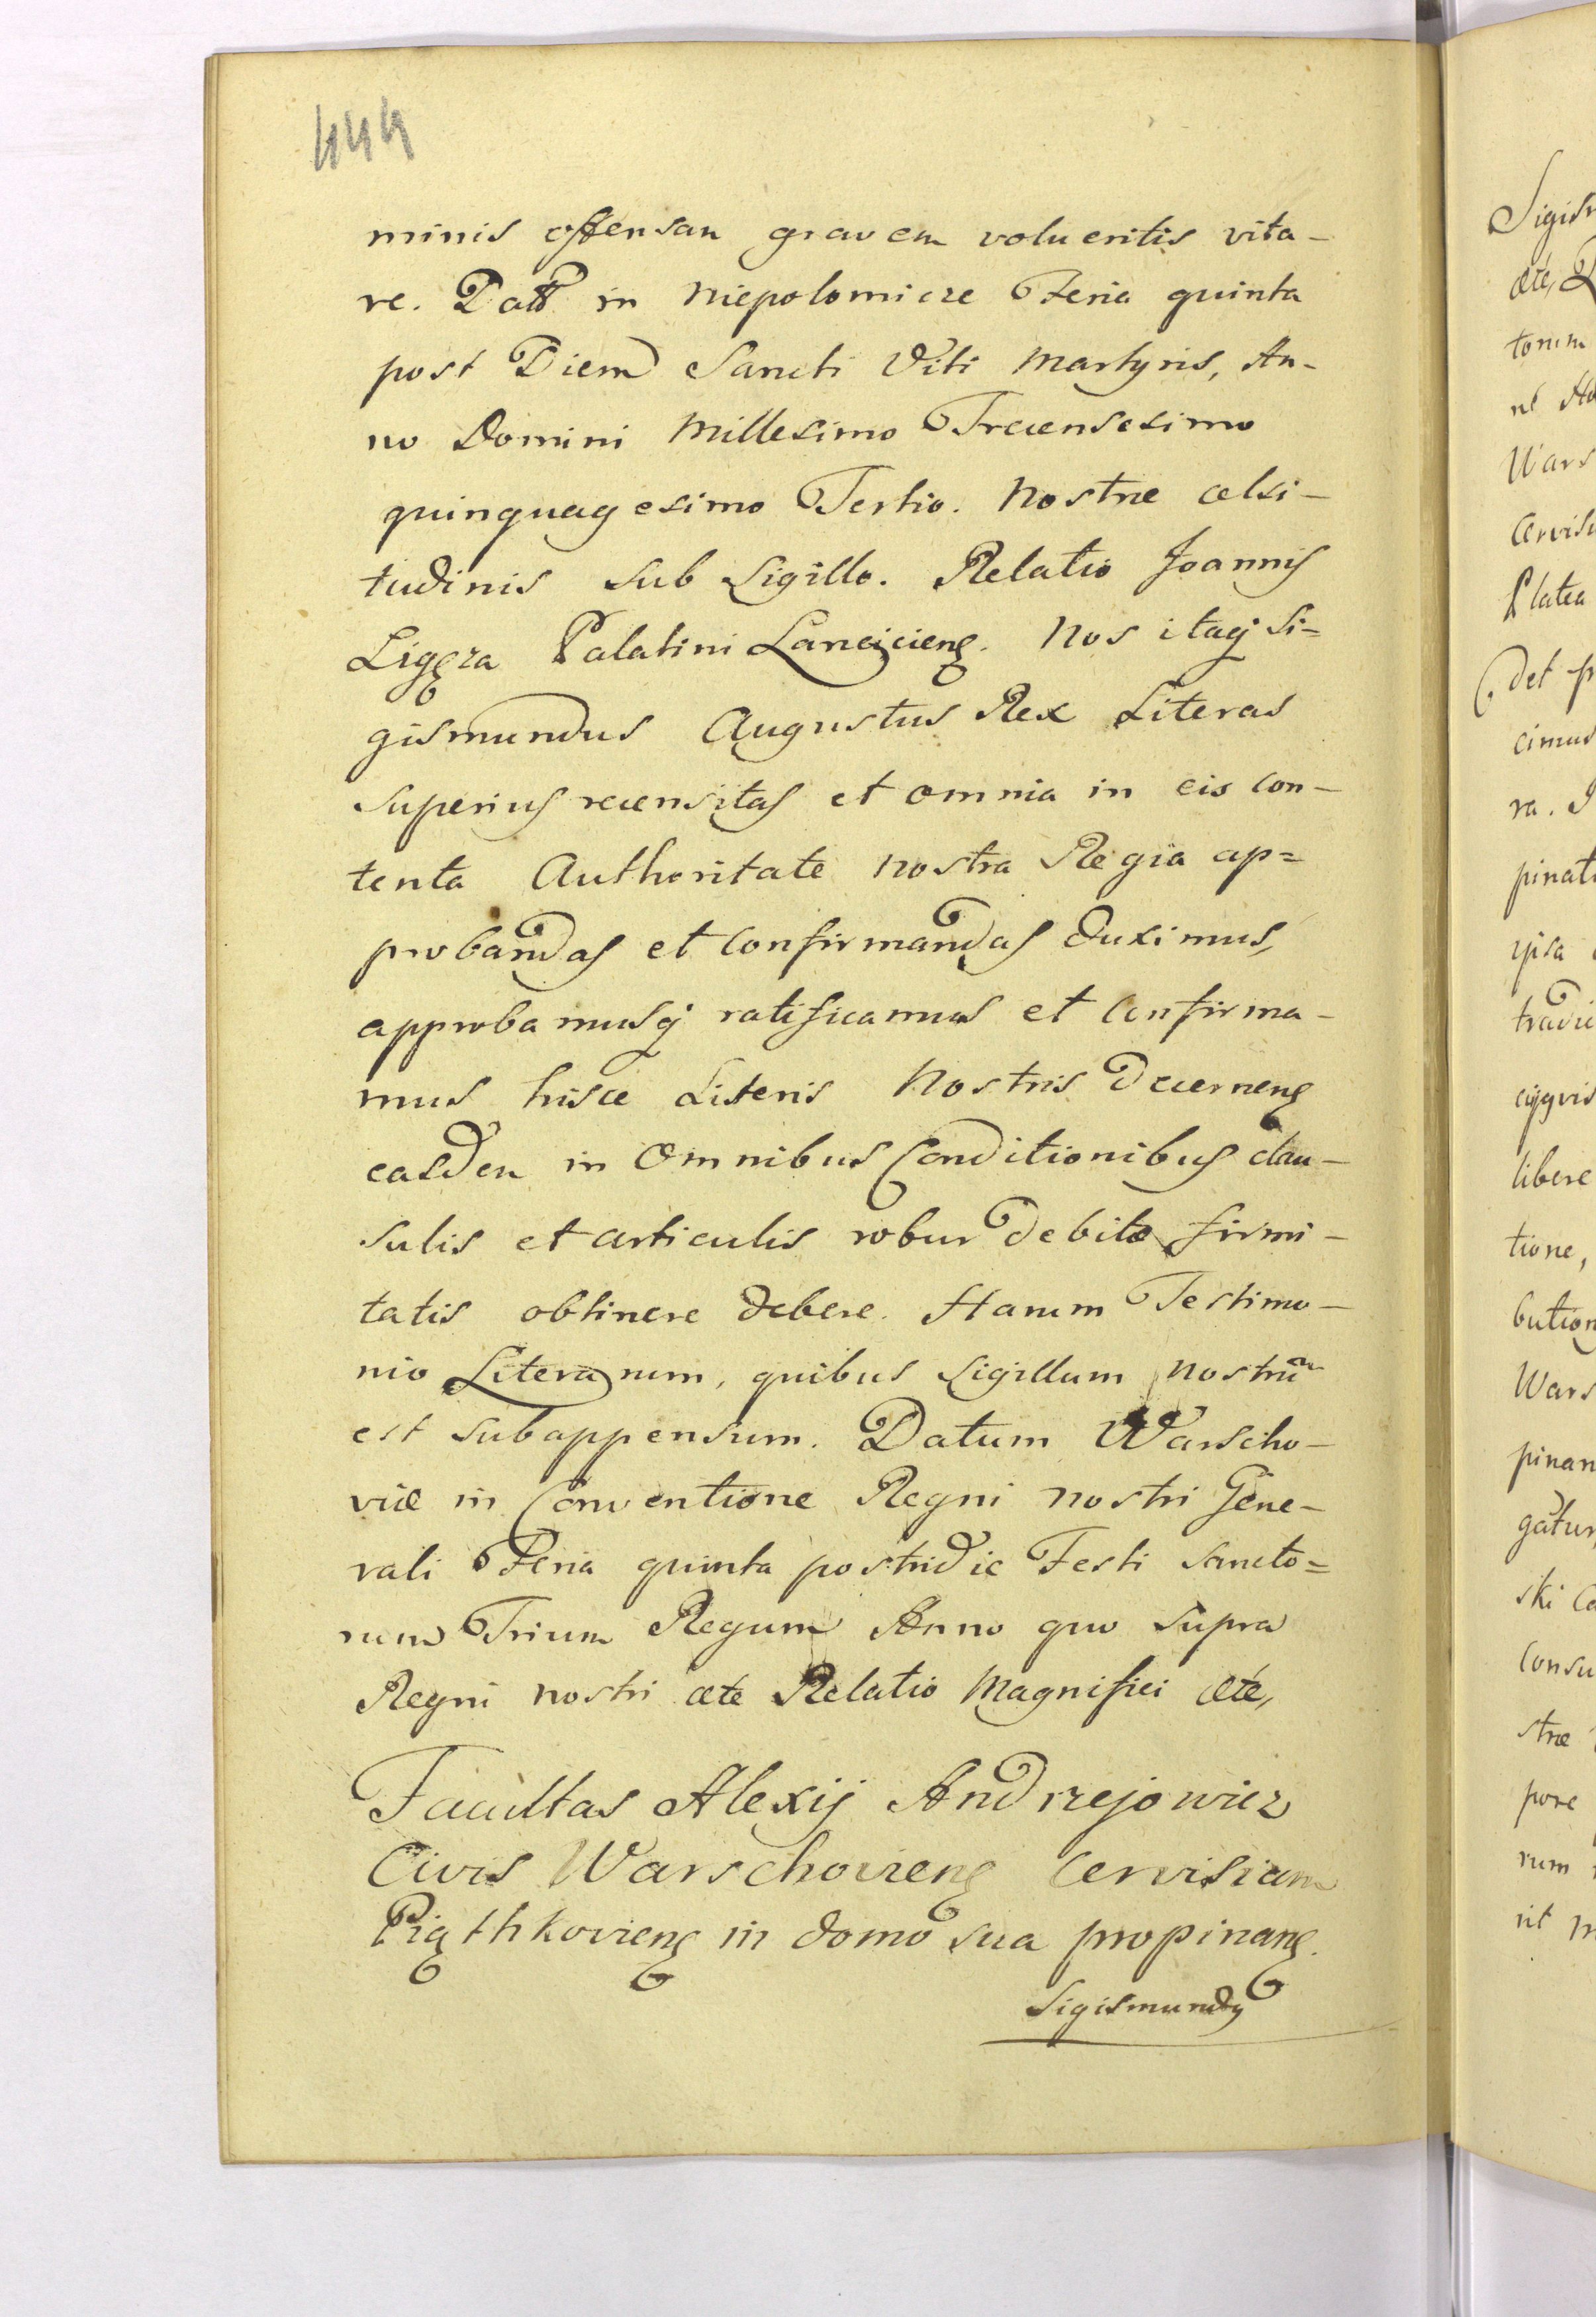 444
minis offensam gravem volueritis vita-
re. Datt in Niepolomicze Feria quinta
post Diem Sancti Viti Martyris, An-
no Domini Millesimo Trecensesimo
quinquagesimo Tertio. Nostræ celsi-
tudinis sub Sigillo. Relatio Joannis
Ligęza Palatini Lancicieną. Nos itaq Si=
gismundus Augustus Rex Literas
superius recensitas et omnia in eis con-
tenta Authoritate nostra Regia ap=
probandas et confirmandas duximus,
approbamusq ratificamus et confirma-
mus hisce Literis Nostris Decerneną
easdem in omnibus Conditionibus clau-
sulis et articulis robur debitæ firmi-
tatis obtinere debere. Harum Testimo-
nio Literarum, quibus Sigillum nostrum
est subappensum. Datum Warscho-
viæ in Conventione Regni nostri Gene-
rali Feria quinta postridie Festi Sancto=
rum Trium Regum Anno quo supra
Regni nostri etc Relatio Magnifici etc,
Facultas Alexij Andrzejowicz
Civis Warschovieną Cervisiam
Piąthkovieną in domo sua propinaną.
Sigismundq
Sigism
etc, D
torum
Wars
Cervis
Platea
det p
cimus
ra. I
pinat
ipsa
tradic
libere
tione,
bution
Wars
pinan
gatur
ski
Consu
stræ
pore
rum
ut